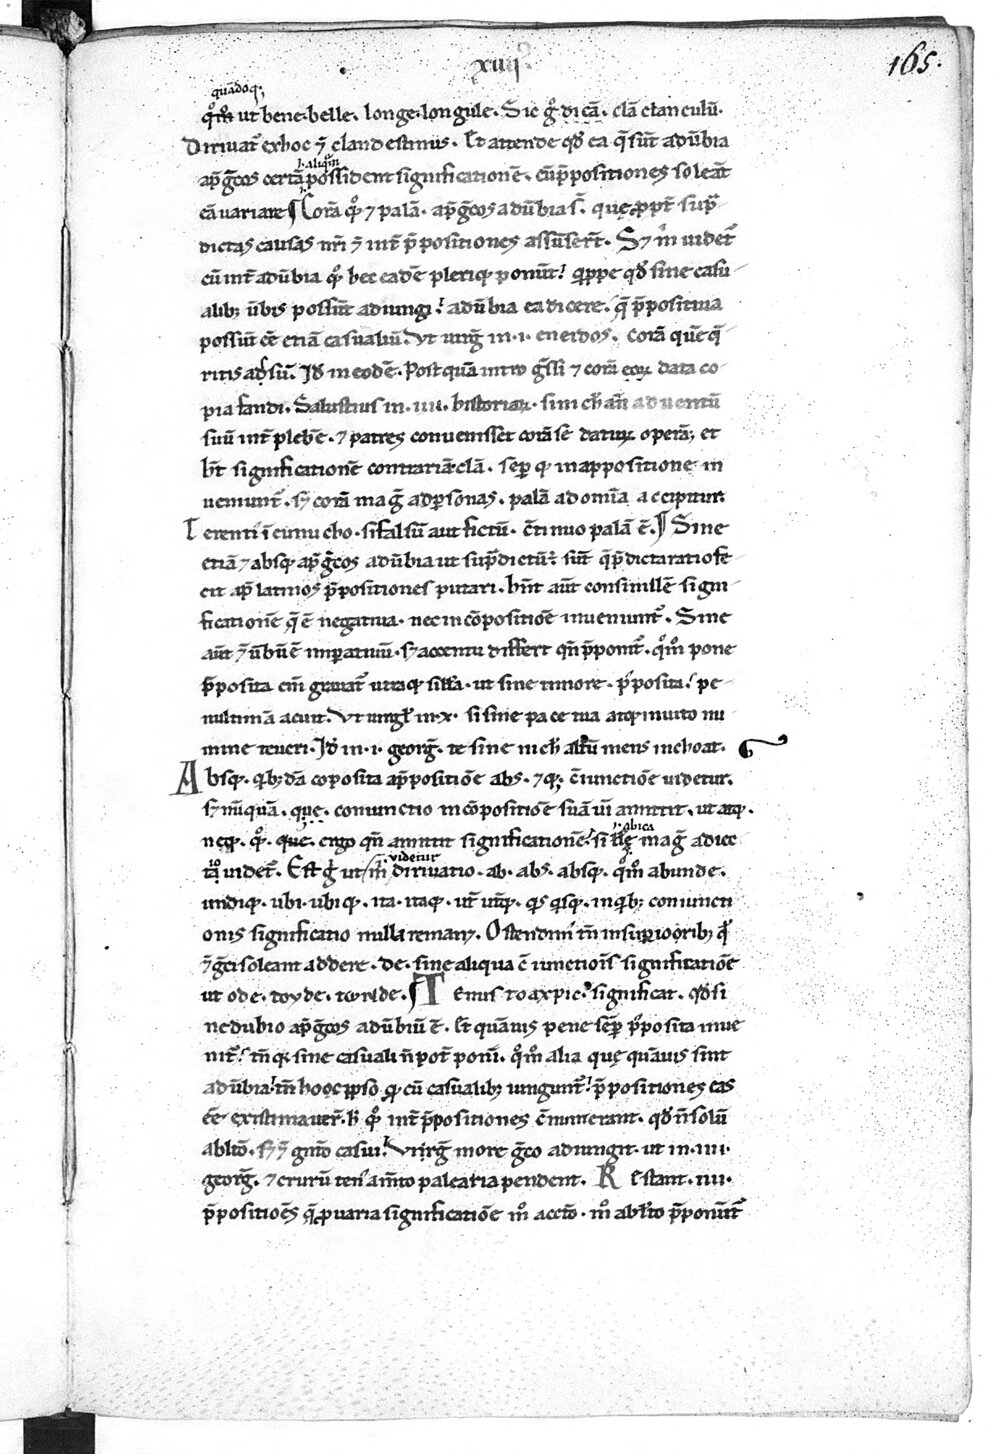 xiiij
165.
quādoq;
q̊m̄ ut bene·belle. longe·longule. Sic ḡ dicā. clā clanculū.
Diriuat̄ ex hoc ⁊̄ clandestinus. Et attende qđ ea q̄ sūt adūbia
l· aliq̊m
ap̄ ḡcos certā possident significationē. cū p̄positiones soleāt
eā uariare ¶ Corā q̊ ⁊ palā. ap̄ ḡcos adūbia s̄. quę ꝓpt̄ sup̄
dictas causas nr̄i ⁊̄ int̄ p̄positiones assūsert̄. S; m̄ uidet̄
cū int̄ adūbia q̊ hec eadē pleriq; ponūt! quppe qđ sine casu
alib; ūbis possūt adiungi! adūbia ea dicere. q̄ p̄positiua
possūt eē etiā casualiū. Vt uirḡ in·i· eneidos. corā quē q̄
ritis adsū. Id̄ in eodē. Post quā intro ḡssi ⁊ corā data co
pia fandi. Salustius in·iiii· historiaꝝ. sin ch̄ an̄ aduentū
suū int̄ plebē. ⁊ patres conuenisset corā se datuꝝ operā; et
h̄t significationē contrariā clā. sep̄ q; in appositione in
ueniunt̄. s; corā mag̃ ad ꝑsonas. palā ad omīa accipitur
Terenti' ī eunucho. si falsū aut fictū. c̄tinuo palā ē. ¶ Sine
etiā ⁊ absq; ap̄ ḡcos adūbia ut sup̄dictū: sūt q̄ p̄dicta ratio fe
cit ap̄ latinos p̄positiones putari. hn̄t aūt consimilē signi
ficationē q̄ ē negatiua. nec in cōpositiōe inueniunt̄. Sine
aūt ⁊̄ ūbū ē imꝑatiuū. s; accentu differt qn̄ p̄ponit̄. q̊m̊ pone
p̄posita eni grauat̄ utraq; sill̄a. ut sine timore. p̄posita! pe
nultimā acuit. Vt uirgł in·x· si sine pace tua atq; inuito nu
mine teucri. Id̄ in·i· georḡ. te sine nich̄ altū mens inchoat.
Absq;. quib; dā coposita ap̄positiōe abs. ⁊ q; c̄iunctiōe uidetur.
s; nūquā. quę. coniunctio in cōpositiōe suā uī amittit. ut atq;.
l· abica
neq;. q̊. que. ergo qn̄ amittit significationē! si ll̄ę mag̃ adiec
uidetur
tā uidet̄. Est ḡ ut m̄ diriuatio. ab. abs. absq;. q̊m̊ abunde.
undiq;. ubi. ubiq;. ita. itaq;. ut̄ utq;. qs qsq;. in quib; coniuncti
onis significatio nulla remanꝫ. Ostendim' tn̄ in suꝑiorib; q̊
⁊̄ ḡci soleant addere. de. sine aliqua c̄iunctiois significatiōe
ut ode. toyde. ¶ Tenus significat. qđ si
ne dubio ap̄ ḡcos adūbiū ē. Et quāuis pene sep̄ p̄posita inue
nit̄! tn̄ q; sine casuali n̄ pot̄ poni. q̊m̊ alia quę quāuis sint
adūbia! tn̄ hoc ipso q; cū casualib; iungunt̄! p̄positiones eas
eē existimauer̄. h̄ q̊ int̄ p̄positiones c̄numerant. qđ n̄ solū
ablt̄o. s; ⁊̄ gnt̄o casui! Virḡ more ḡco adiungit. ut in·iii·
georḡ. ⁊ crurū ten' am̄to palearia pendent. Restant·iiii·
p̄positiōes q̄ ꝓ uaria significatiōe m̊ acct̄o. m̊ ablt̄o p̄ponūt̄